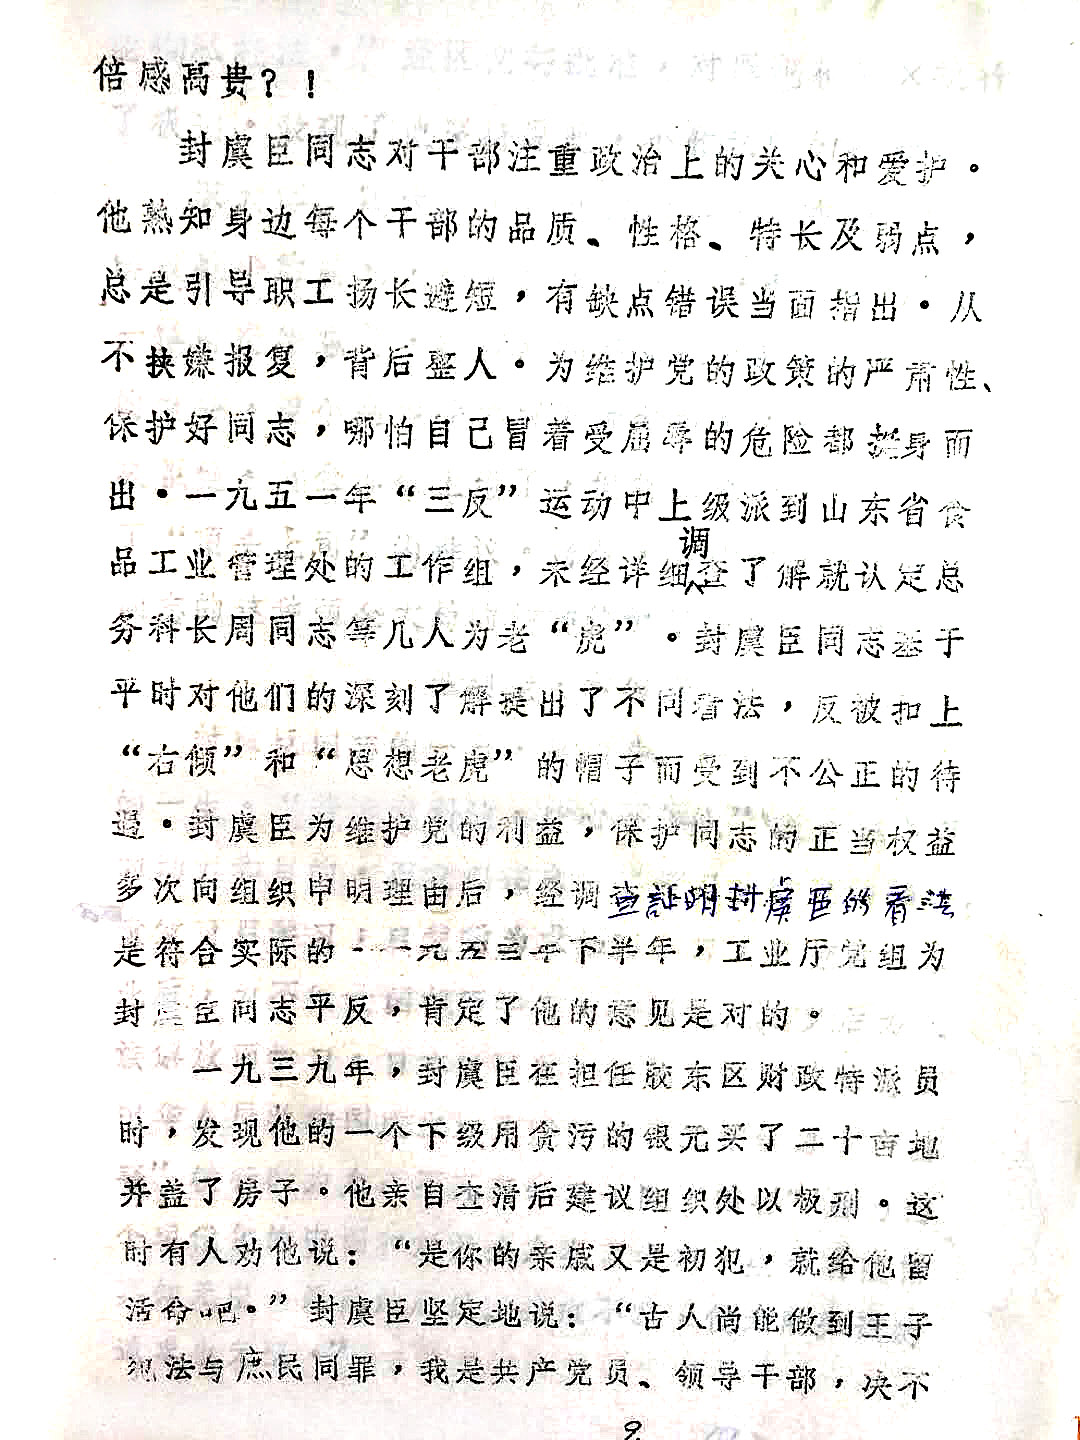 倍感高贵？！
封虞臣同志对干部注重政治上的关心和爱护。
他熟知身边每个干部的品质、性格、特长及弱点，
总是引导职工扬长避短，有缺点错误当面指出。从
不挟嫌报复，背后整人。为维护党的政策的严肃性、
保护好同志，哪怕自己冒着受屈辱的危险都挺身而
出。一九五一年“三反”运动中上级派到山东省食
品工业管理处的工作组，未经详细调查了解就认定总
务科长周同志等几人为老“虎”。封虞臣同志基于
平时对他们的深刻了解提出了不同看法，反被扣上
“右倾”和“思想老虎”的帽子而受到不公正的待
遇。封虞臣为维护党的利益，保护同志的正当权益
多次向组织申明理由后，经调查証明封虞臣的看法
是符合实际的。一九五三年下半年，工业厅党组为
封虞臣同志平反，肯定了他的意见是对的。
一九三九年，封虞臣在担任胶东区财政特派员
时，发现他的一个下级用贪污的银元买了二十亩地
并盖了房子。他亲自查清后建议组织处以极刑。这
时有人劝他说：“是你的亲戚又是初犯，就给他留
活命吧。”封虞臣坚定地说：“古人尚能做到王子
犯法与庶民同罪，我是共产党员、领导干部，决不
9.